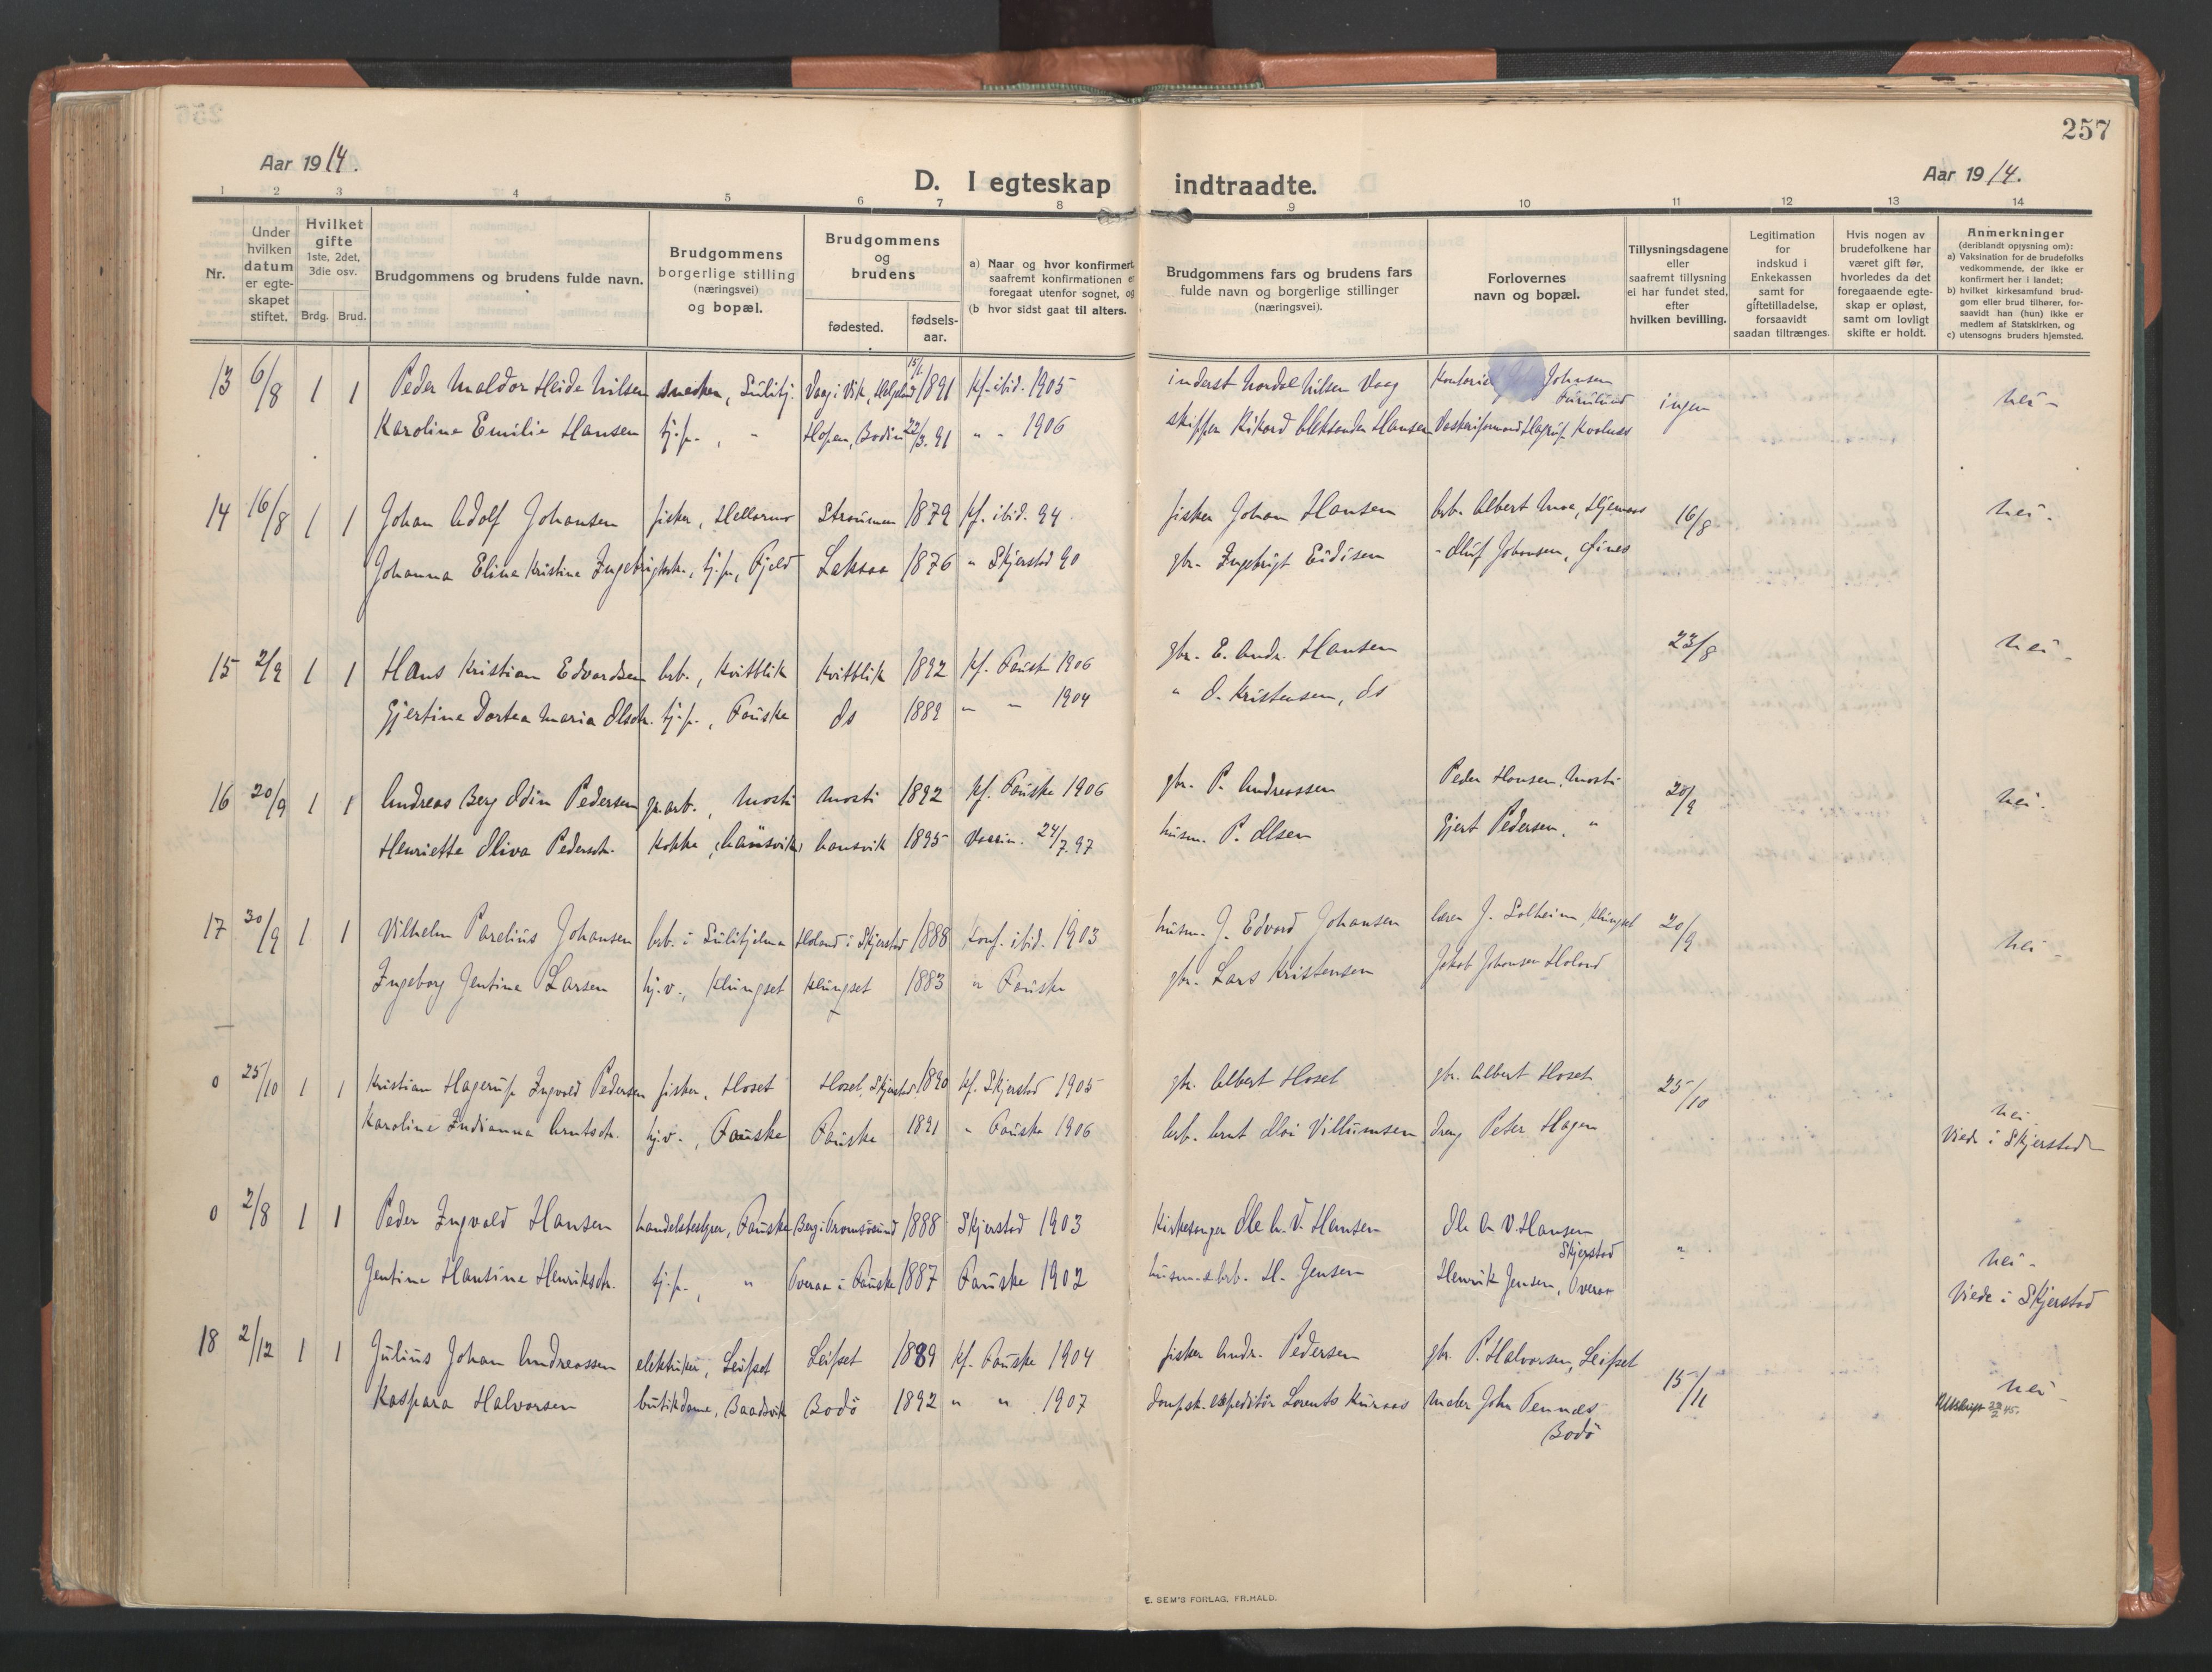 257
Aar 1914.
D. I egteskap indtraadte.
Aar 1914.
1 2 3 4 5 6 7 8 9 10 11 12 13 14
Nr.
Under hvilken datum er egte-skapet stiftet.
Hvilket gifte 1ste, 2det, 3die osv.
Brdg. Brud.
Brudgommens og brudens fulde navn.
Brudgommens borgerlige stilling (næringsvei) og bopæl.
Brudgommens og brudens
fødested.
fødsels-aar.
a) Naar og hvor konfirmert, saafremt konfirmationen er foregaat utenfor sognet, og
(b hvor sidst gaat til alters.
Brudgommens fars og brudens fars fulde navn og borgerlige stillinger (næringsvei).
Forlovernes navn og bopæl.
Tillysningsdagene eller saafremt tillysning ei har fundet sted, efter hvilken bevilling.
Legitimation for indskud i Enkekassen samt for giftetilladelse, forsaavidt saadan tiltrænges.
Hvis nogen av brudefolkene har været gift før, hvorledes da det foregaaende egte-skap er opløst, samt om lovligt skifte er holdt.
Anmerkninger
(deriblandt opjysning om):
a) Vaksination for de brudefolks vedkommende, der ikke er konfirmert her i landet;
b) hvilket kirkesamfund brud-gom eller brud tilhører, for-saavidt han (hun) ikke er medlem af Statskirken, og
c) utensogns bruders hjemsted.
13 6/8 1 1 Peder Haldor Heide Nilsen snedker, Sulitj. Vaag i Vik, Helgeland 15/1 1891 kf. ibid. 1905 inderst Nordal Nilsen Vaag Johnsen Furulund ingen nei -
Karoline Emilie Hansen tj.p., " Hopen, Bodin 22/3. 91 " " 1906 skipper Rikard Aleksander Hansen
14 16/8 1 1 Johan Adolf Johansen fisker, Hellarmo Straumen 1879 kf. ibid. 94 fisker Johan Hansen arb. Albert Moe, Hjemaas 16/8 nei -
Johanna Elina Kristine Ingebrigtsdr., tj.p, Fjeld Laksaa 1876 " Skjerstad 90 gbr. Ingebrigt Eidisen - Oluf Johansen, Fines
15 2/9 1 1 Hans Kristian Edvardsen arb., Kvitblik Kvitblik 1892 kf. Fauske 1906 gbr. E. Andr. Hansen 23/8 nei -
Gjertine Dortea Maria Olsdtr. tj.p., Fauske ds 1889 " " 1904 " O. Kristensen, ds
16 20/9 1 1 Andreas Berg Odin Pedersen gr.arb., Mosti Mosti 1892 kf. Fauske 1906 gbr. P. Andreassen Peder Hansen, Mosti 20/9 nei -
Henriette Oliva Pedersdtr. kokke, 1895 Vaccin. 24/7 97 husm. P. Olsen Gjert Pedersen, "
17 30/9 1 1 Vilhelm Parelius Johansen arb. i Sulitjelma Holand i Skjerstad 1888 konf. ibid. 1903 husm. J. Edvard Johansen lærer J. Solheim, Klungset 20/9 nei -
Ingeborg Jentine Larsen hj.v., Klungset Klungset 1883 " Fauske gbr. Lars Kristensen Jakob Johansen Holand
0 25/10 1 1 Kristian Hagerup Ingvald Pedersen fisker, Hoset Hoset, Skjerstad 1890 kf. Skjerstad 1905 gbr. Albert Hoset gbr. Albert Hoset 25/10 nei
Karoline Indianna Arntsdtr. hj.v., Fauske Fauske 1891 " Fauske 1906 arb. Arnt Villumsen dreng Peter Hagen Viede i Skjerstad
0 2/8 1 1 Peder Ingvald Hansen handelsbestyrer, Fauske Berg i Tromsøsund 1888 Skjerstad 1903 Kirkesanger Ole A. V. Hansen Ole A V. Hansen Skjerstad " nei -
Jentine Hansine Henriksdtr. tj.p., " Overaa i Fauske 1887 Fauske 1902 husm. & arb. H. Jensen Henrik Jensen, Overaa Viede i Skjerstad
18 2/12 1 1 Julius Johan Andreassen elektriker, Leifset Leifset 1889 kf. Fauske 1904 fisker Andr. Pedersen gbr. P. Halvorsen, Leifset 15/11 nei -
Kaspara Halvorsen butikdame, Baadsvik Bodö 1892 " " 1907 dampsk. expeditör Lorents Maler John Tennes Bodö Utskrift 45.
E. SEM'S FORLAG, FR.HALD.